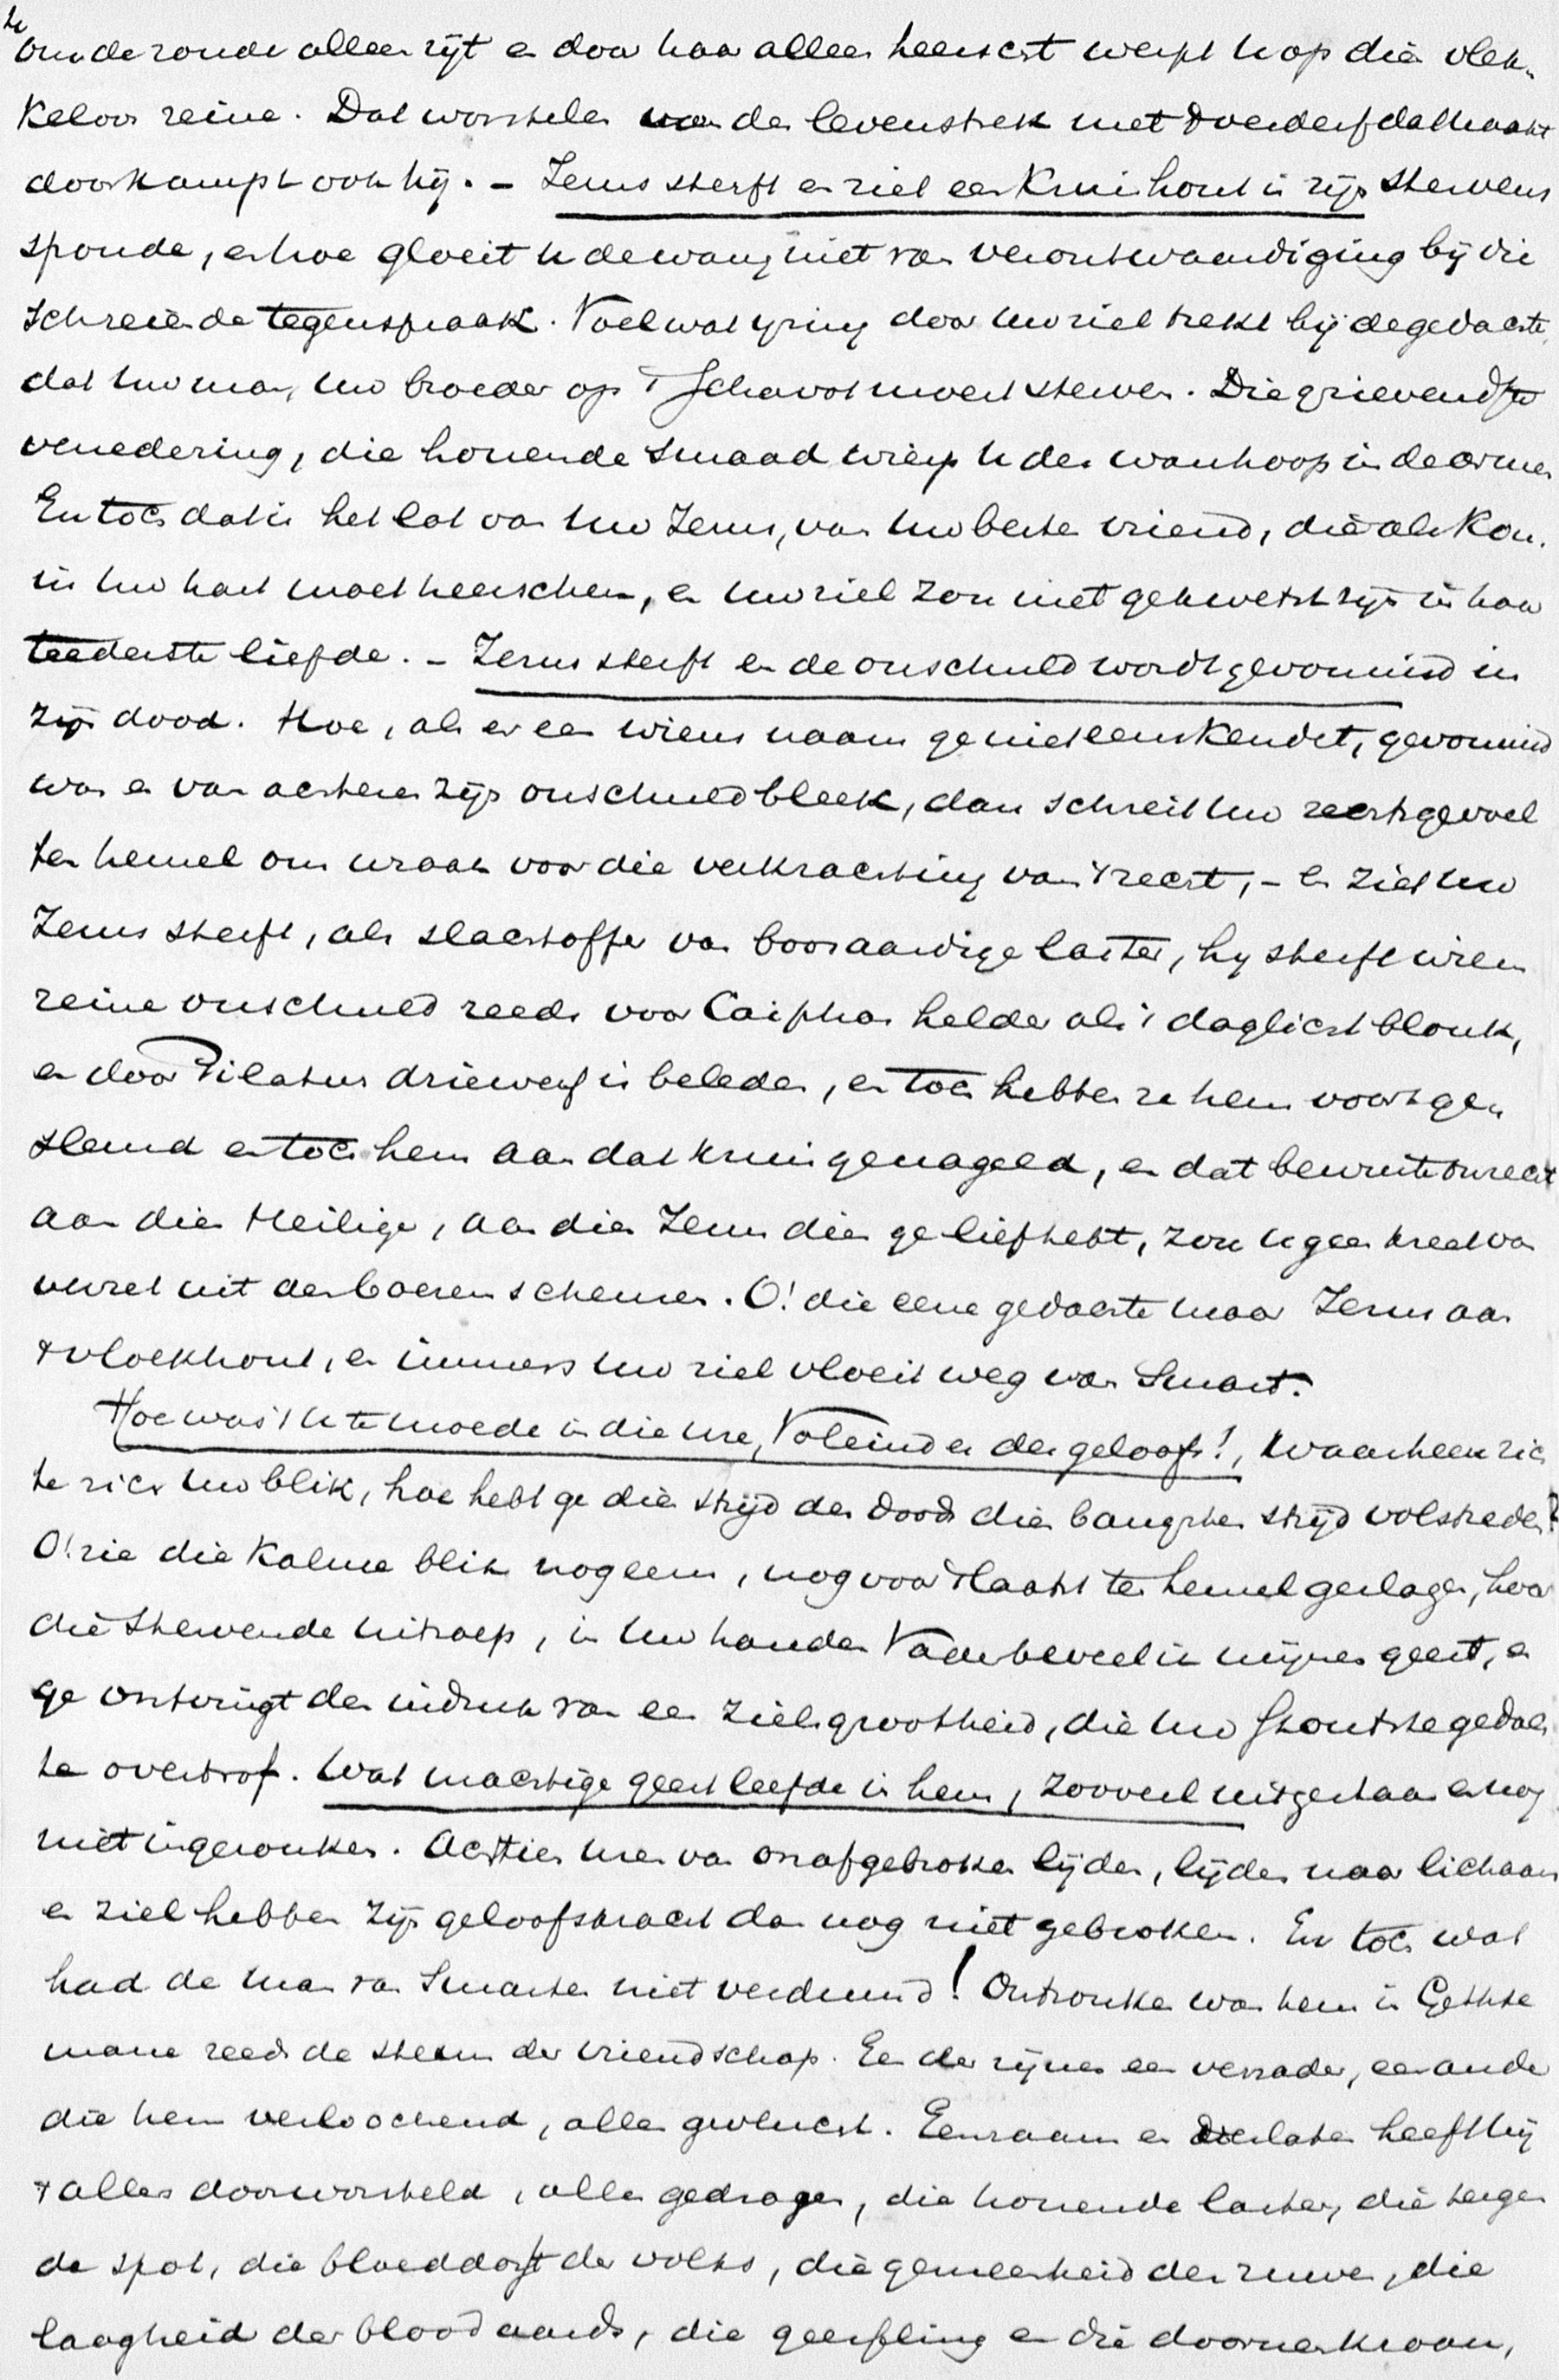 om de zonde alleen zijt en door haar alleen heerscht werpt u op dien vlek-
keloos reine. Dat worstelen van den levenstrek met 't verderf dat haakt
doorkampt ook hij. – Jezus sterft en ziet een kruishout is zijn stervens
sponde, en hoe gloeit u de wang niet van verontwaardiging bij die
schreiende tegenspraak. Voel wat ijzing door uw ziel trekt bij de gedachte,
dat uw man, uw broeder op 't schavot moest sterven. Die grievendste
vernedering, die honende smaad wierp u der wanhoop in de armen
En toch dat is het lot van uw Jezus, van uw besten vriend, die als Kon.
in uw hart moet heerschen, en uw ziel zou niet gekwetst zijn in haar
teederste liefde. – Jezus sterft en de onschuld wordt gevonnisd in
zijn dood. Hoe, als er een wiens naam ge niet eens kendet, gevonnisd
was en van achteren zijn onschuld bleek, dan schreit uw rechtsgevoel
ten hemel om wraak voor die verkrachting van 't recht, – en ziet uw
Jezus sterft, als slachtoffer van boosaardige laster, hij sterft wiens
reine onschuld reeds voor Caiphas helder als 't daglicht blonk,
en door Pilatus driewerf is beleden, en toch hebben ze hem voortge-
sleurd en toch hem aan dat kruis genageld, en dat bewuste onrecht
aan dien Heilige, aan dien Jezus dien ge liefhebt, zou u geen kreet van
wrevel uit den boezem scheuren. O! die eene gedachte maar Jezus aan
't vloekhout, en immers uw ziel vloeit weg van smart.
Hoe was 't u te moede in die ure, Voleinder des geloofs!, Waarheen rich
te zich uw blik, hoe hebt ge dien strijd des doods dien bangsten strijd volstreden?
O! zie die kalme blik nog eens, nog voor 't laatst ten hemel geslagen, hoor
die stervende uitroep, in uw handen Vader beveel ik mijnen geest, en
ge ontvingt den indruk van een zielsgrootheid, die uw stoutste gedach
te overtrof. Wat machtige geest leefde in hem, zooveel uitgestaan en nog
niet ingezonken. Achttien uren van onafgebroken lijden, lijden naar lichaam
en ziel hebben zijn geloofskracht dan nog niet gebroken. En toch wat
had de man van smarten niet verduurd! Ontzonken was hem in Gethse
mane reeds de steun der vriendschap. Een der zijnen een verrader, een ander
die hem verloochend, allen gevlucht. Eenzaam en verlaten heeft hij
't alles doorworsteld, alles gedragen, die honende laster, die tergen
de spot, die bloeddorst des volks, die gemeenheid der ruwen, die
laagheid der bloodaards, die geesseling en die doornenkroon,